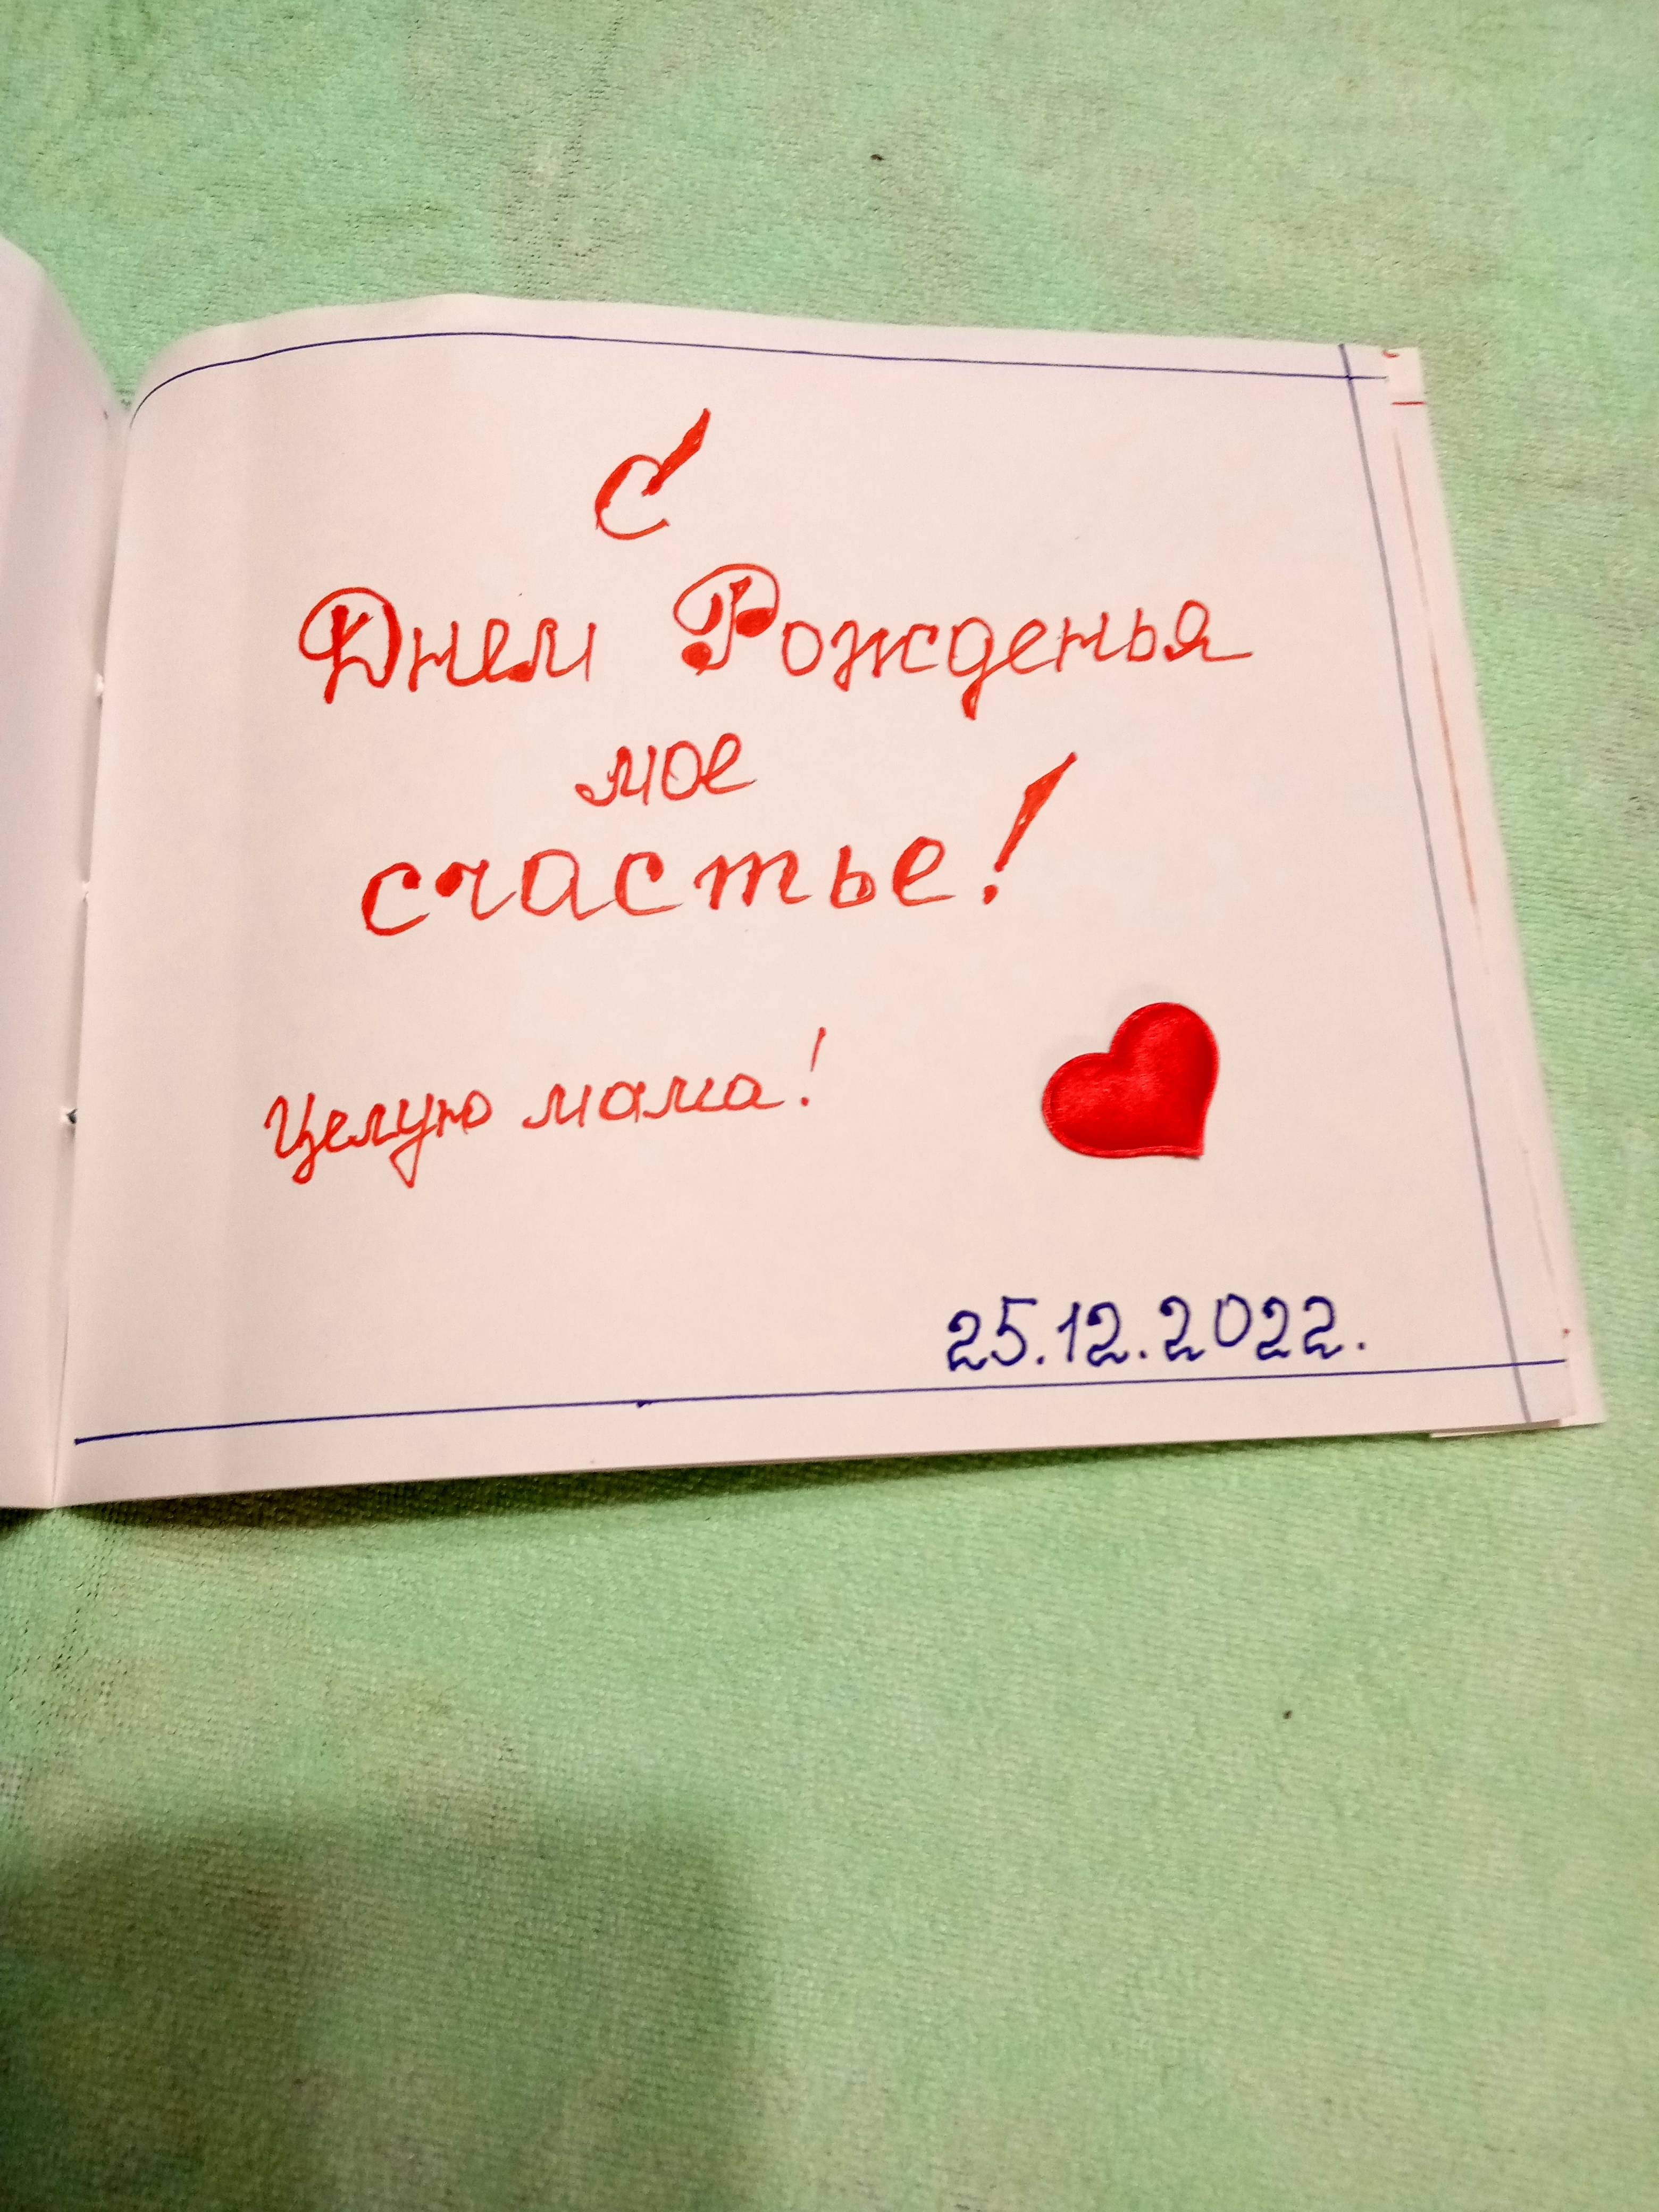 С
Днем Рожденья
мое
счастье!
Целую мама!
25.12.2022.